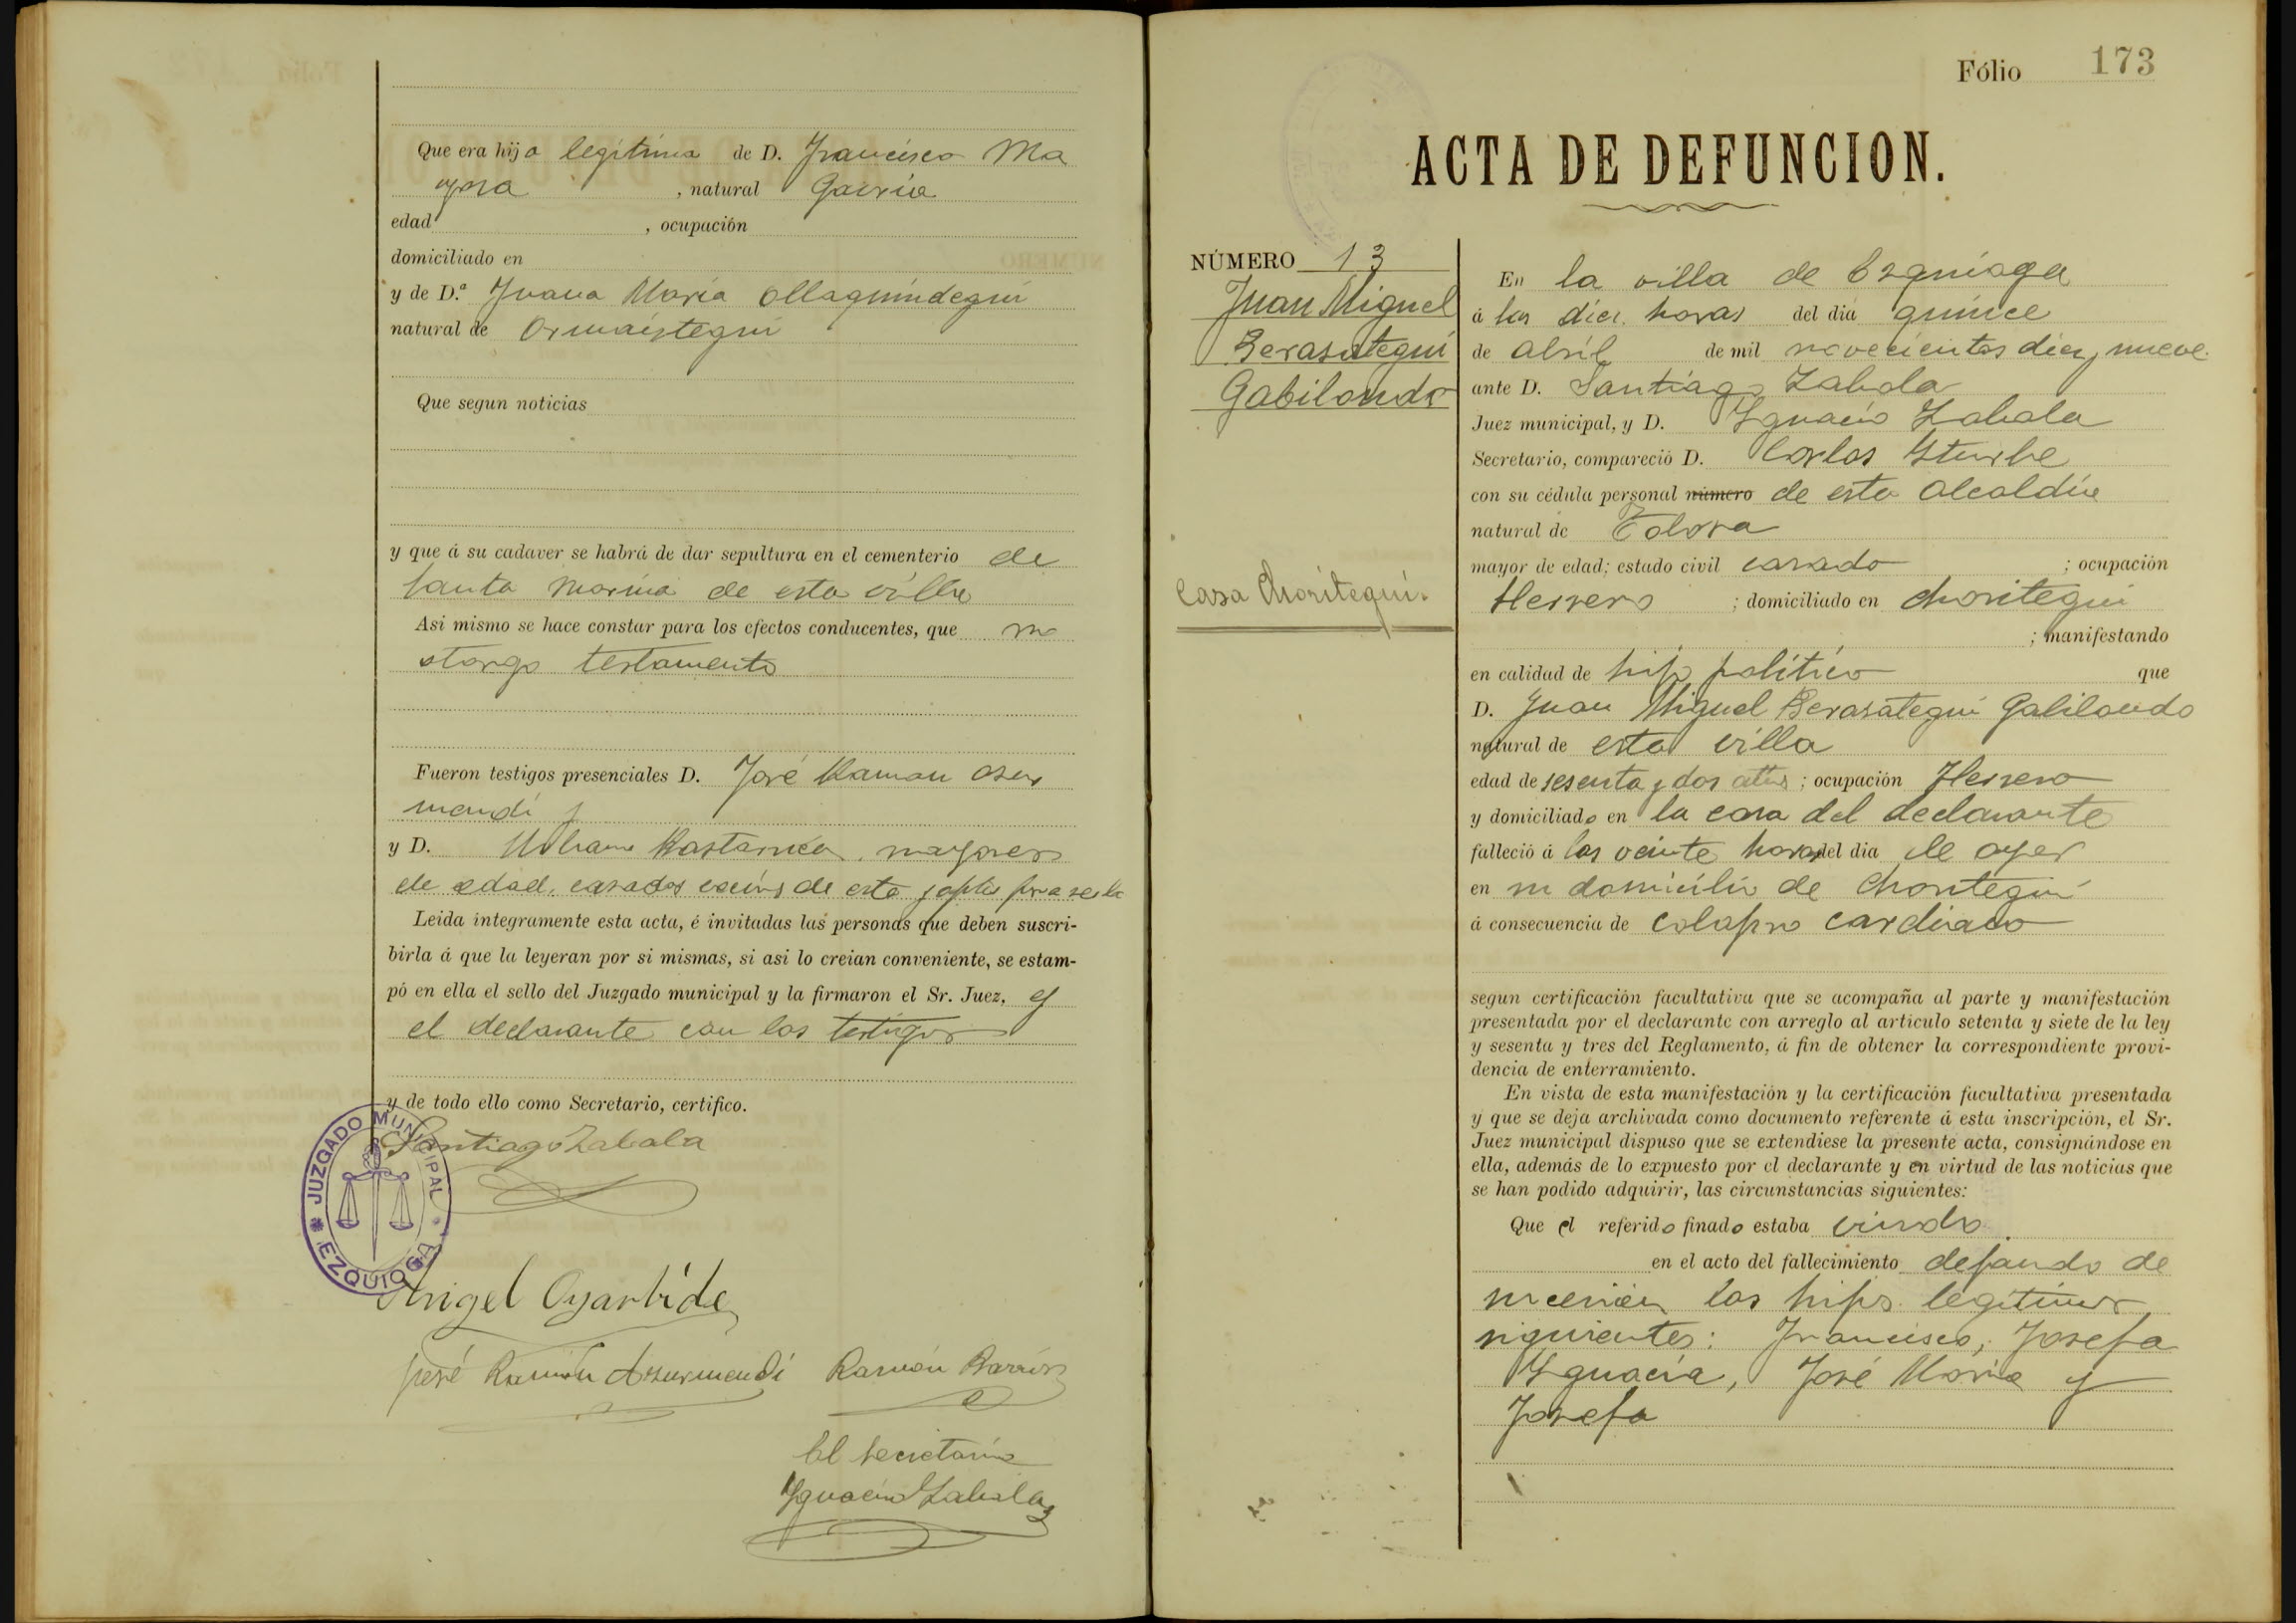 Que era hija legítima de D. Francisco Ma
yora, natural Gaviria
edad , ocupación
domiciliado en
y de D.ª Juana María Ollaquindegui
natural de Ormaiztegui
Que segun noticias
y que á su cadaver se habrá de dar sepultura en el cementerio de
Santa Marina de esta villa
Asi mismo se hace constar para los efectos conducentes, que no
otorgo testamento
Fueron testigos presenciales D. José Ramon Azur
mendi y
y D. mayores
de edad, casados vecinos de esta
Leida íntegramente esta acta, é invitadas las personas que deben suscri-
birla á que la leyeran por si mismas, si asi lo creian conveniente, se estam-
pó en ella el sello del Juzgado municipal y la firmaron el Sr. Juez, y
el declarante con los testigos
y de todo ello como Secretario, certifico.
Santiago Zabala
JUZGADO MUNICIPAL
EZQUIOGA
Angel Oyarbide
José Ramón Azurmendi Ramón Barrios
El Secretario
Ygnacio Zabala
Fólio 173
ACTA DE DEFUNCION.
NÚMERO 13
Juan Miguel
Berasategui
Gabilondo
Casa Choritegui.
En la villa de Ezquioga
á las diez horas del dia quince
de Abril de mil novecientos diez y nueve
ante D. Santiago Zabala
Juez municipal, y D. Ygnacio Zabala
Secretario, compareció D. Carlos Yturbe
con su cédula personal número de esta Alcaldía
natural de Tolosa
mayor de edad; estado civil casado ; ocupación
Herrero ; domiciliado en Choritegui
; manifestando
en calidad de hijo político que
D. Juan Miguel Berasategui Gabilondo
natural de esta villa
edad de sesenta y dos años ; ocupación Herrero
y domiciliado en la casa del declarante
falleció á las veinte horas del dia de ayer
en su domicilio de Choritegui
á consecuencia de colapso cardiaco
segun certificación facultativa que se acompaña al parte y manifestación
presentada por el declarante con arreglo al articulo setenta y siete de la ley
y sesenta y tres del Reglamento, á fin de obtener la correspondiente provi-
dencia de enterramiento.
En vista de esta manifestación y la certificación facultativa presentada
y que se deja archivada como documento referente á esta inscripción, el Sr.
Juez municipal dispuso que se extendiese la presente acta, consignándose en
ella, además de lo expuesto por el declarante y en virtud de las noticias que
se han podido adquirir, las circunstancias siguientes:
Que el referido finado estaba viudo
en el acto del fallecimiento dejando de
sucesión los hijos legítimos
siguientes: Francisco, Josefa
Ygnacia, José María y
Josefa